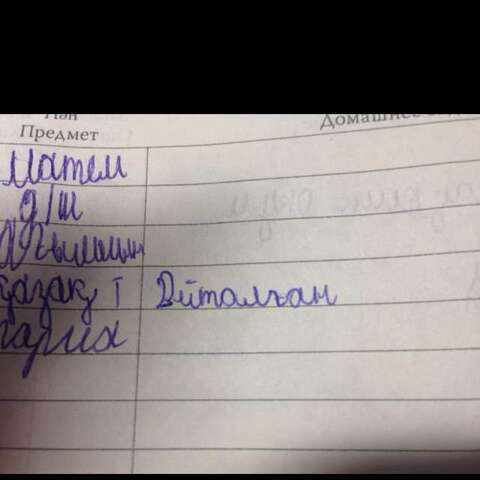 Пән
Предмет Домашнее
Матем
д/ш
Ағылшын
қазақ т Айталған
тарих